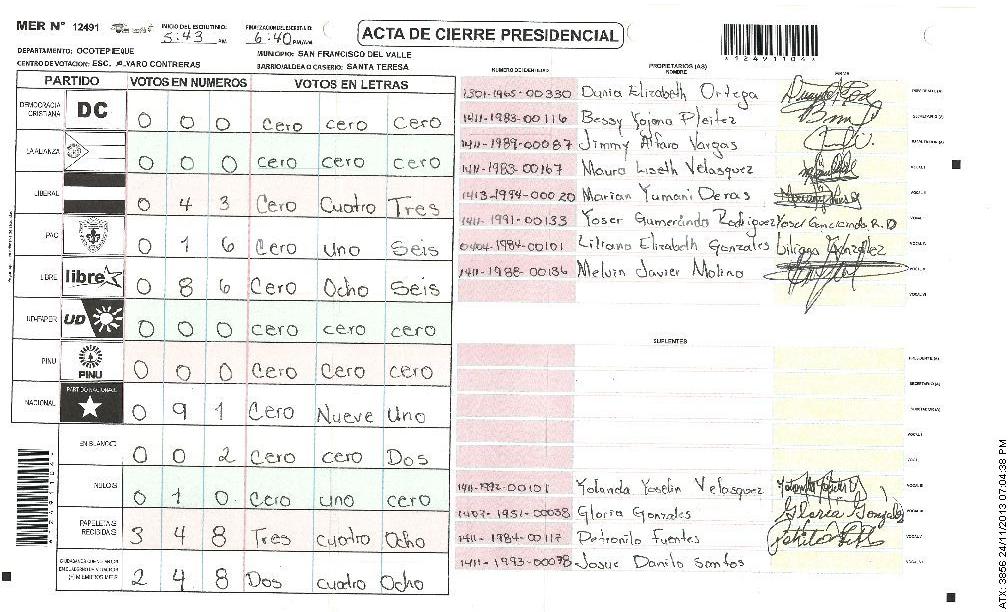 MER N° 12491
INICIO DEL ESCRUTINIO: 5:43 PM
FINALIZACION DEL ESCRUTINIO: 6:40 PM/AM
ACTA DE CIERRE PRESIDENCIAL
12491104
DEPARTAMENTO: OCOTEPEQUE
MUNICIPIO: SAN FRANCISCO DEL VALLE
CENTRO DE VOTACION: ESC. ALVARO CONTRERAS
BARRIO/ALDEA O CASERIO: SANTA TERESA
PARTIDO VOTOS EN NUMEROS VOTOS EN LETRAS
DEMOCRACIA CRISTIANA DC 0 0 0 cero cero cero
LA ALIANZA 0 0 0 cero cero cero
LIBERAL 0 4 3 Cero Cuatro Tres
PAC 0 1 6 Cero uno Seis
LIBRE libre 0 8 6 Cero Ocho Seis
UD-FAPER UD 0 0 0 cero cero cero
PINU PINU 0 0 0 Cero Cero cero
NACIONAL PARTIDO NACIONAL 0 9 1 Cero Nueve Uno
EN BLANCO 0 0 2 Cero cero Dos
NULOS 0 1 0 Cero uno cero
PAPELETAS RECIBIDAS 3 4 8 Tres cuatro Ocho
2 4 8 Dos cuatro Ocho
NUMERO DE IDENTIDAD PROPIETARIOS (AS) NOMBRE FIRMA
1301-1965-00330 Dunia Elizabeth Ortega PRESIDENTE (A)
1411-1983-00116 Bessy Yojana Pleitez SECRETARIO (A)
1411-1989-00087 Jimmy Alfaro Vargas ESCRUTADOR (A)
1411-1983-00167 Maura Liseth Velasquez VOCAL I
1413-1994-00020 Marian Yumani Deras VOCAL II
1411-1991-00133 Yoser Gumercindo Rodriguez Yoser Gumercindo R.D VOCAL
0404-1984-00101 Liliana Elizabeth Gonzales Liliana Gonzalez VOCAL
1411-1988-00136 Melvin Javier Molina VOCAL
VOCAL VI
SUPLENTES
PRESIDENTE (A)
SECRETARIO (A)
ESCRUTADOR (A)
VOCAL I
VOCAL
1411-1992-00101 Yolanda Yoselin Velasquez VOCAL III
1407-1951-00038 Gloria Gonzales Gloria Gonzalez VOCAL
1411-1984-00117 Petronilo Fuentes VOCAL V
1411-1993-00078 Josue Danilo Santos VOCAL VI
ATX: 3856 24/11/2013 07:04:38 PM